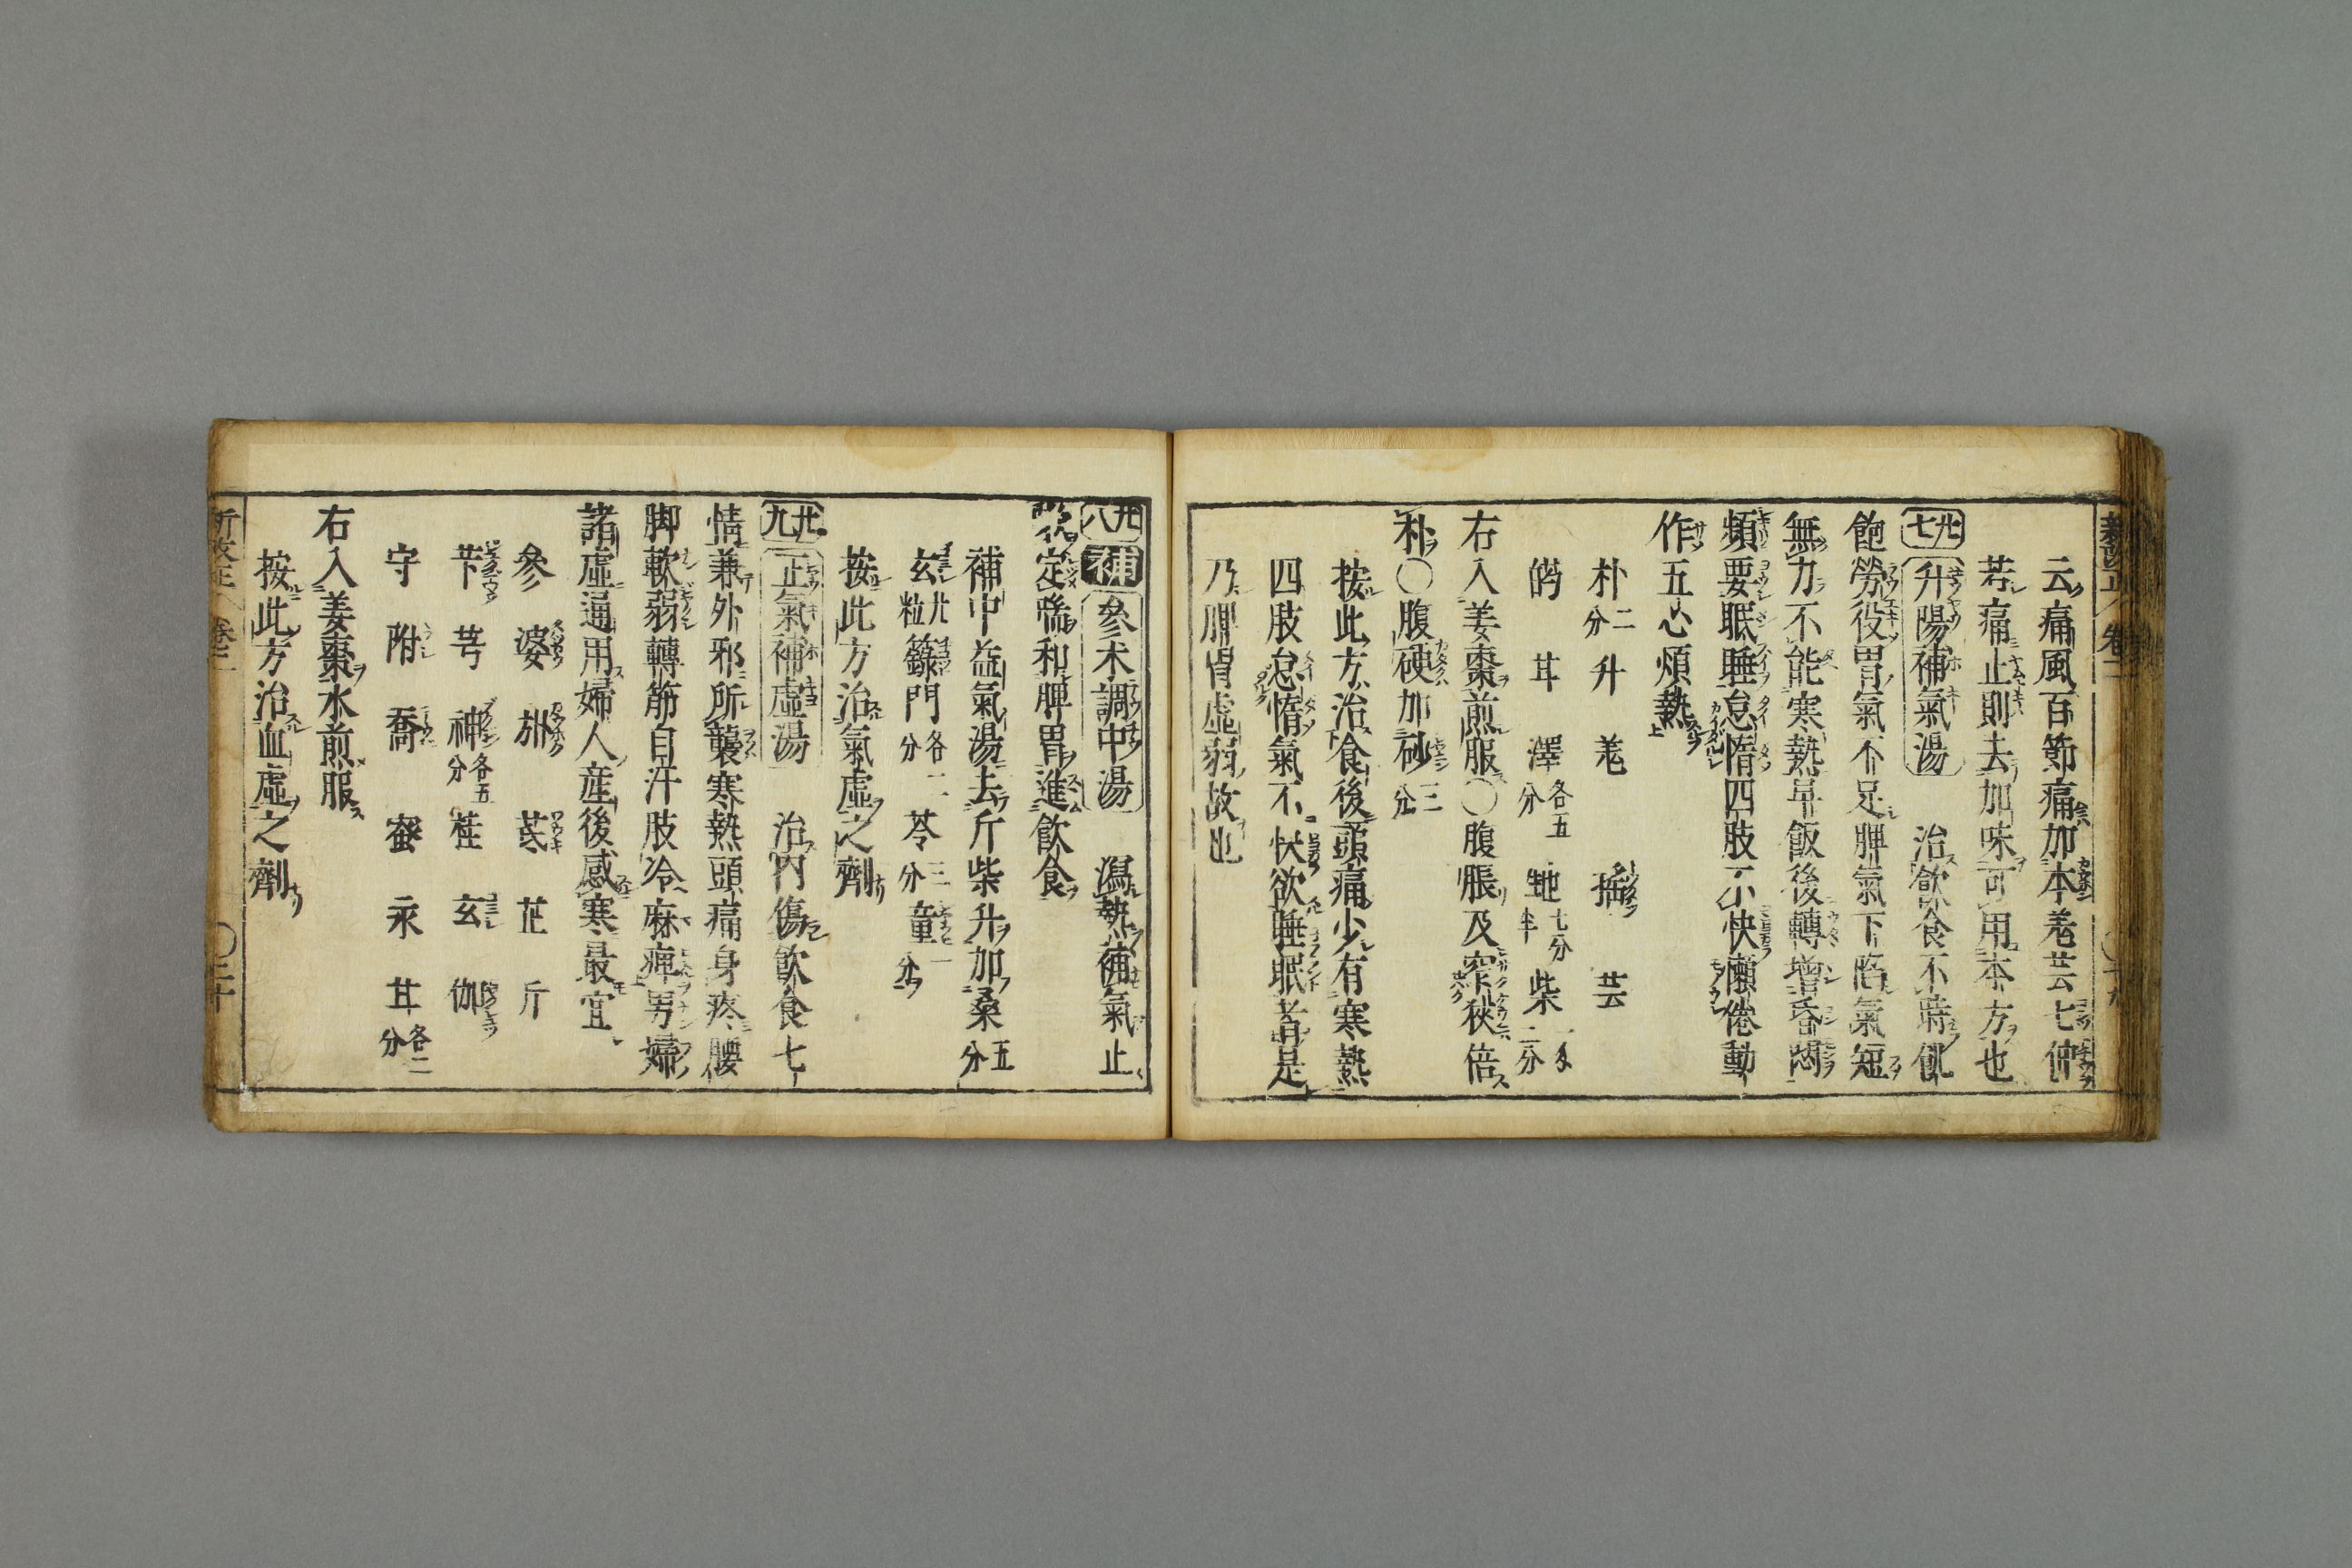 云痛風百節痛加本羗芸七俾
若痛止則去加味可用本方也
廿七 升陽補氣湯 治飲食不時飢
飽勞役胃氣不足脾氣下陷氣短
無力不能寒熱早飯後轉增昏悶
頻要眠睡怠惰四肢不快懶倦動
作五心煩熱
朴二分 升 羗 芸
芍 耳 澤各五分 地七分半 柴一匁二分
右入姜棗煎服〇腹脹及窄狹倍
朴〇腹硬加砂三分
按此方治食後頭痛少有寒熱
四肢怠惰氣不快欲睡眠者是
乃脾胃虛弱故也
廿八 補 參朮調中湯 瀉熱補氣止
定喘和脾胃進飲食
補中益氣湯去斤柴升加桑五分
玄廿粒 籙門各二分 苓三分 童一分
按此方治氣虛之劑
廿九 正氣補虛湯 治内傷飲食七
情兼外邪所襲寒熱頭痛身疼腰
脚軟弱轉筋自汗肢冷麻痺男婦
諸虛通用婦人產後感寒最宜
參 婆 芪 芷 斤
芐 芎 神各五分 桂 玄 伽
守 附 喬 蜜 永 甘各二分
右入姜棗水煎服
按此方治血虛之劑
卷二
卷二 〇二十